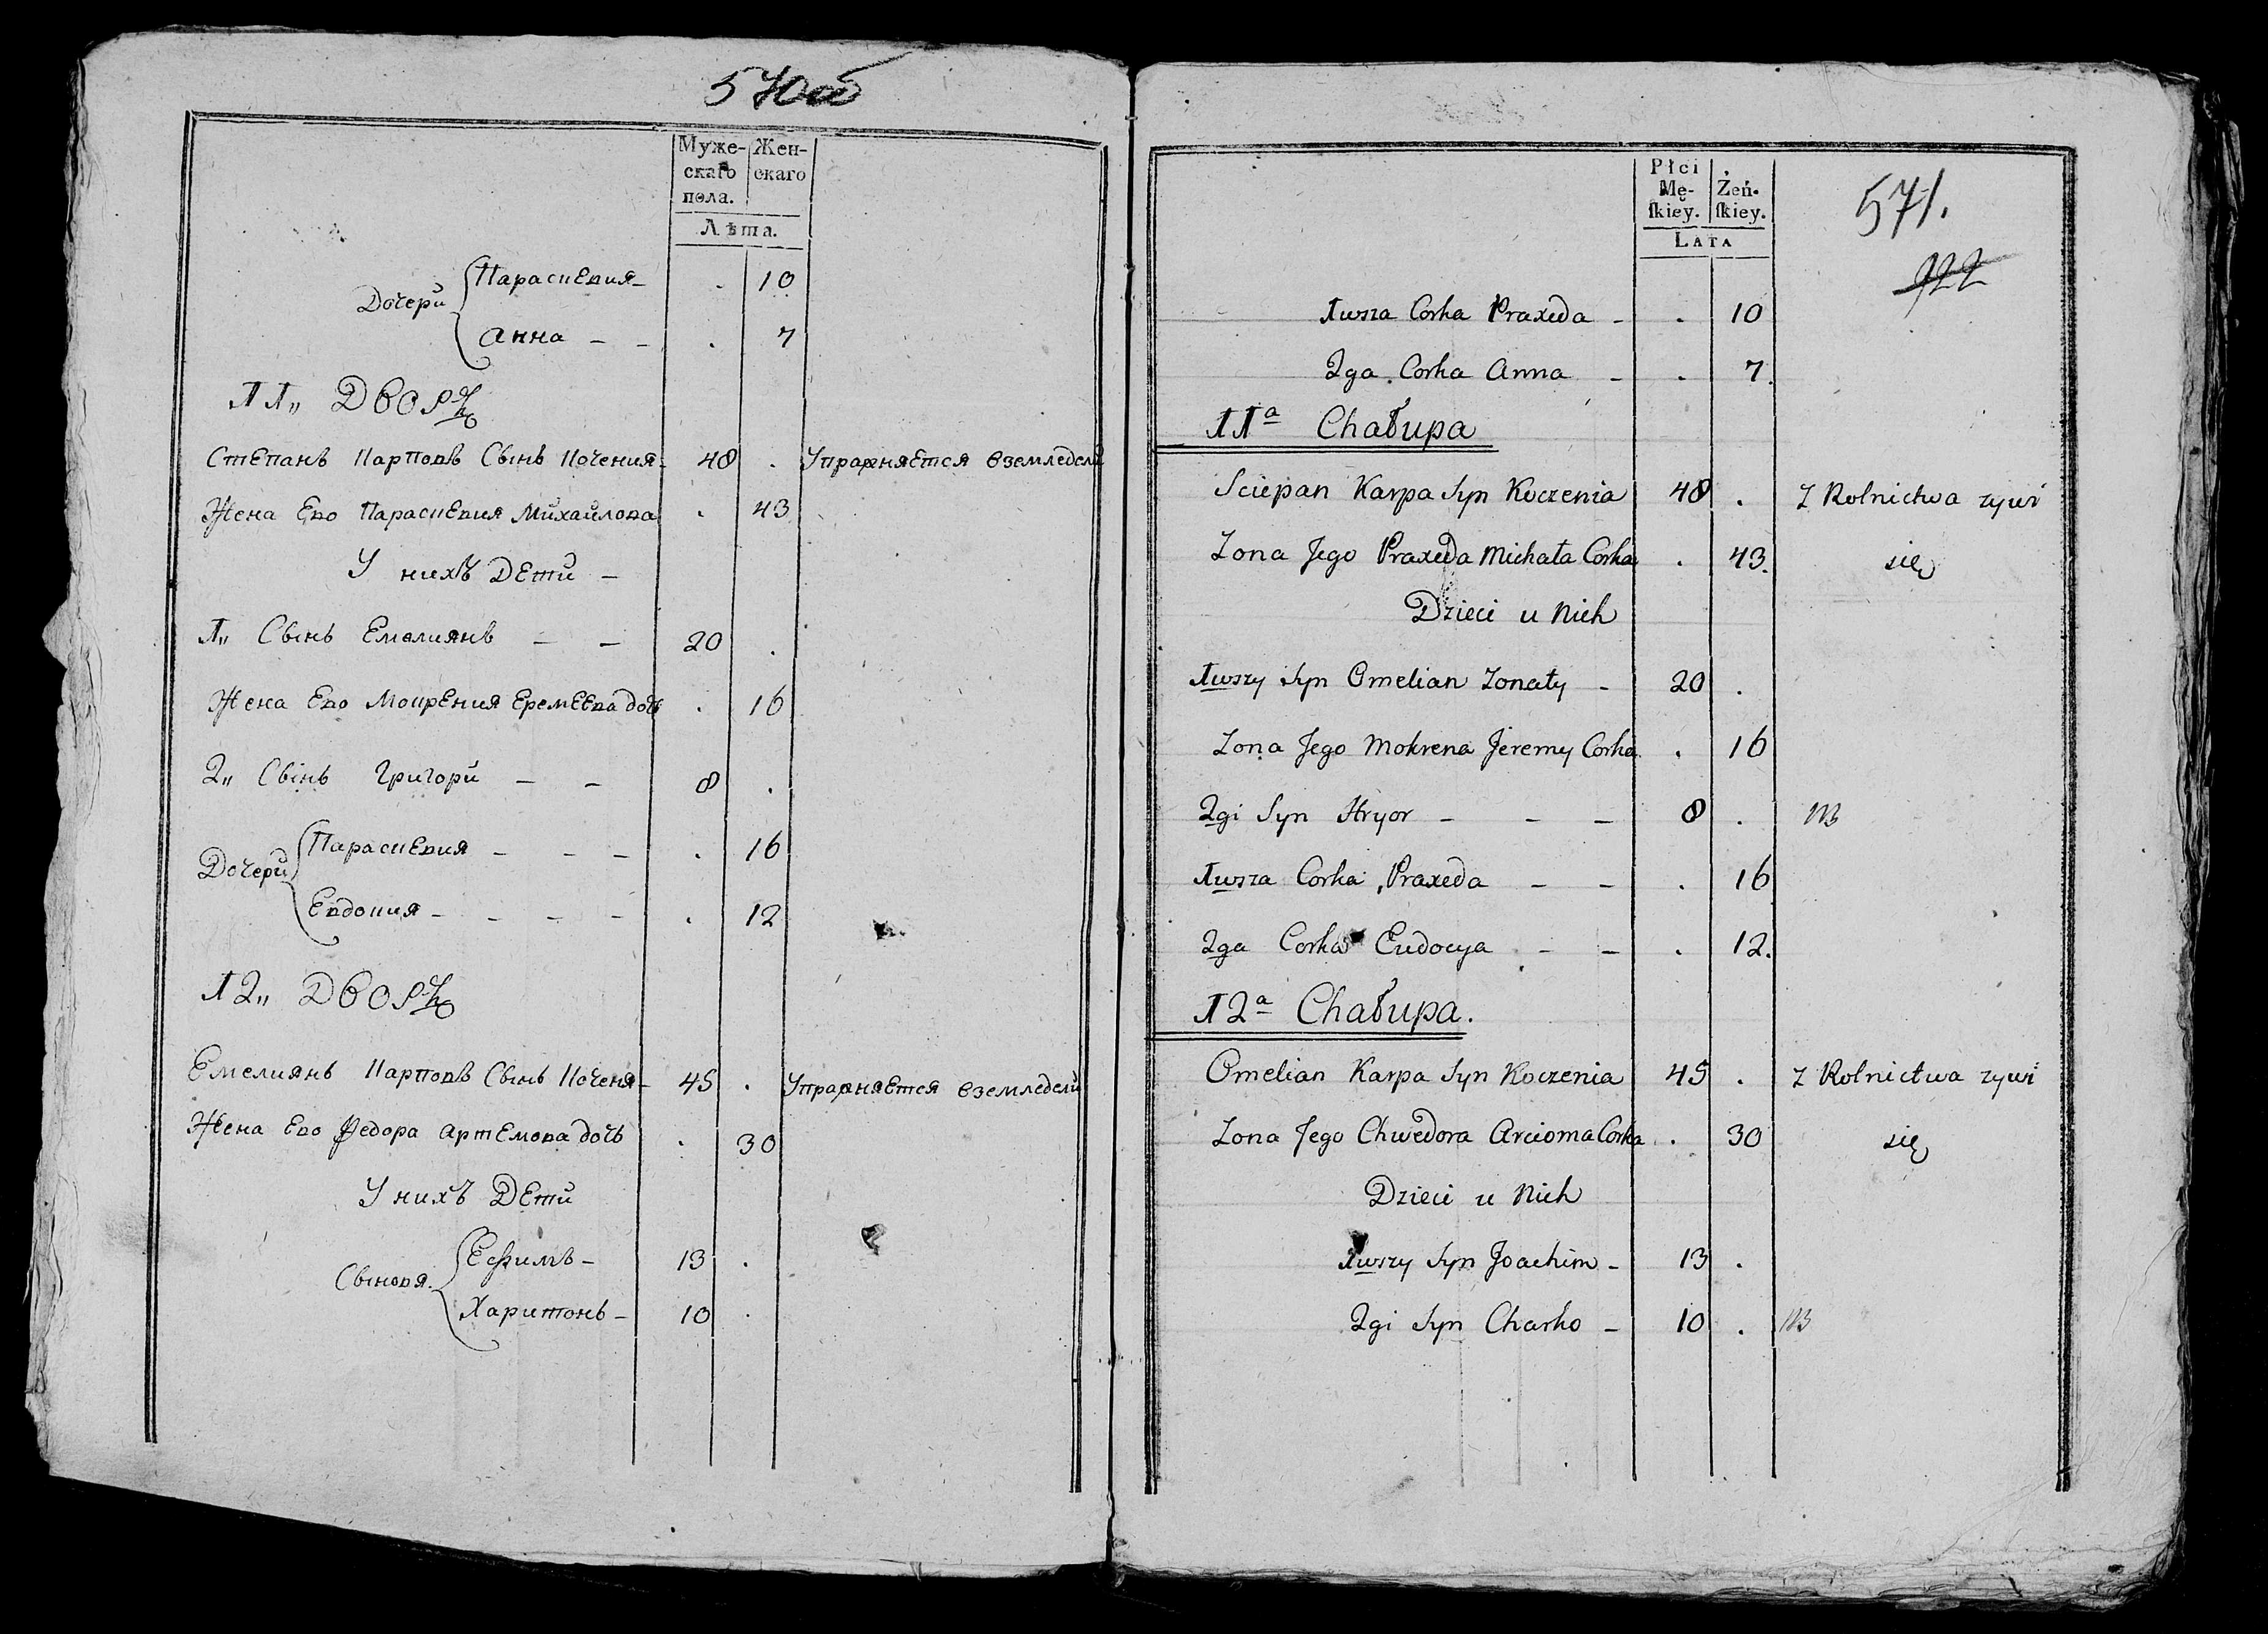 570об
Муже-
скаго
пола.
Жен-
скаго
Лѣта.
Дочери
Параскевия - . 10
Анна - - . 7
11„ Дворъ
Степанъ Карповъ Сынъ Коченя - 48 . Упражняется вземледели
Жена Ево Параскевия Михайлова . 43
У нихъ Дети -
1„ Сынъ Емелиянъ - - 20 .
Жена Ево Мокрения Еремеева дочь . 16
2„ Сынъ Григори - - 8 .
Дочери
Параскевия - - - . 16
Евдокия - - - - . 12
12„ Дворъ
Емелиянъ Карповъ Сынъ Коченя - 45 . Упражняется вземледели
Жена Ево Федора Артемова дочь . 30
У нихъ Дети
Сыновя
Ефимъ - 13 .
Харитонъ - 10 .
Płci
Mę-
skiey.
Żeń-
skiey.
LATA
571.
922
1wsza Corka Praxeda - . 10
2ga Corka Anna - . 7.
11a Chałupa
Sciepan Karpa Syn Koczenia 48 . Z Rolnictwa zywi
Zona Jego Praxeda Michała Corka . 43. się
Dzieci u Nich
1wszy Syn Omelian Zonaty - 20 .
Zona Jego Mokrena Jeremy Corka . 16
2gi Syn Hryor - - - 8 .
1wsza Corka Praxeda - - . 16
2ga Corka Eudocya - - . 12.
12a Chałupa.
Omelian Karpa Syn Koczenia 45 . Z Rolnictwa zywi
Zona Jego Chwedora Arcioma Corka . 30 się
Dzieci u Nich
1wszy Syn Joachim - 13 .
2gi Syn Charko - 10 .